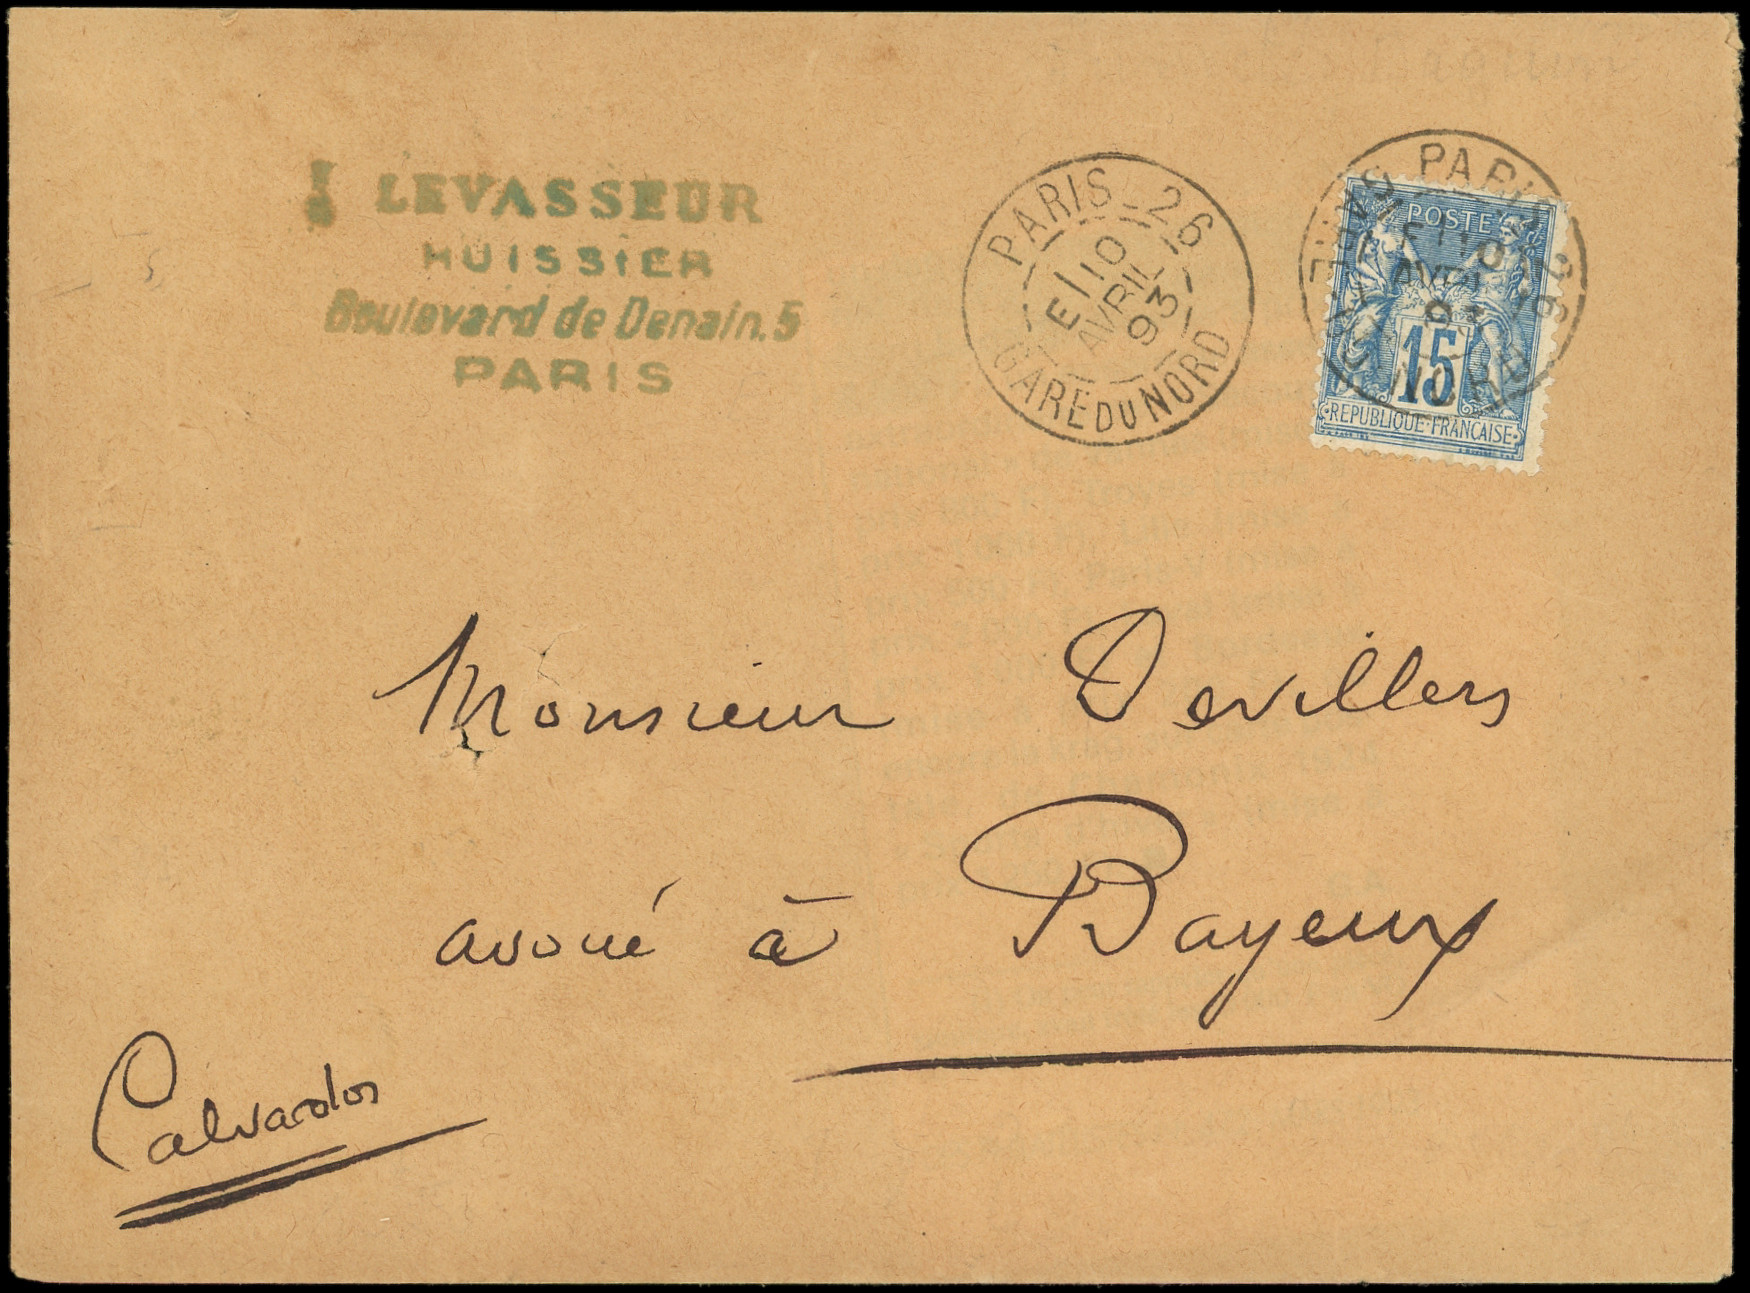 LEVASSEUR
HUISSIER
Boulevard de Denain. 5
PARIS
PARIS_26
E 1 10
AVRIL
93
GARE DU NORD
PARIS_26
AVRIL
93
GARE DU NORD
POSTE
15
REPUBLIQUE FRANCAISE
Monsieur Devillers
avoué à Bayeux
Calvados